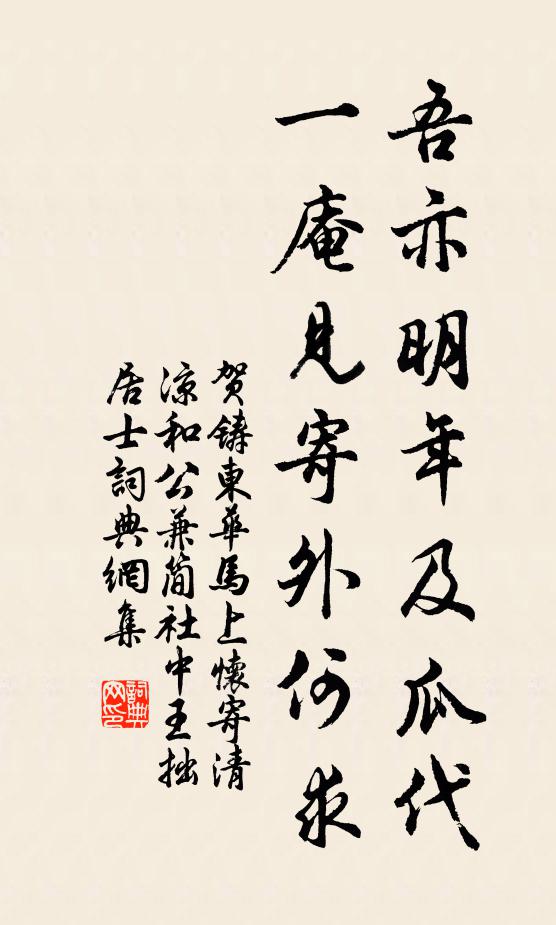 吾亦明年及瓜代
一庵見寄外何求
賀鑄東華馬上懷寄清
涼和公兼簡社中王拙
居士詞典網集
詞典
网印